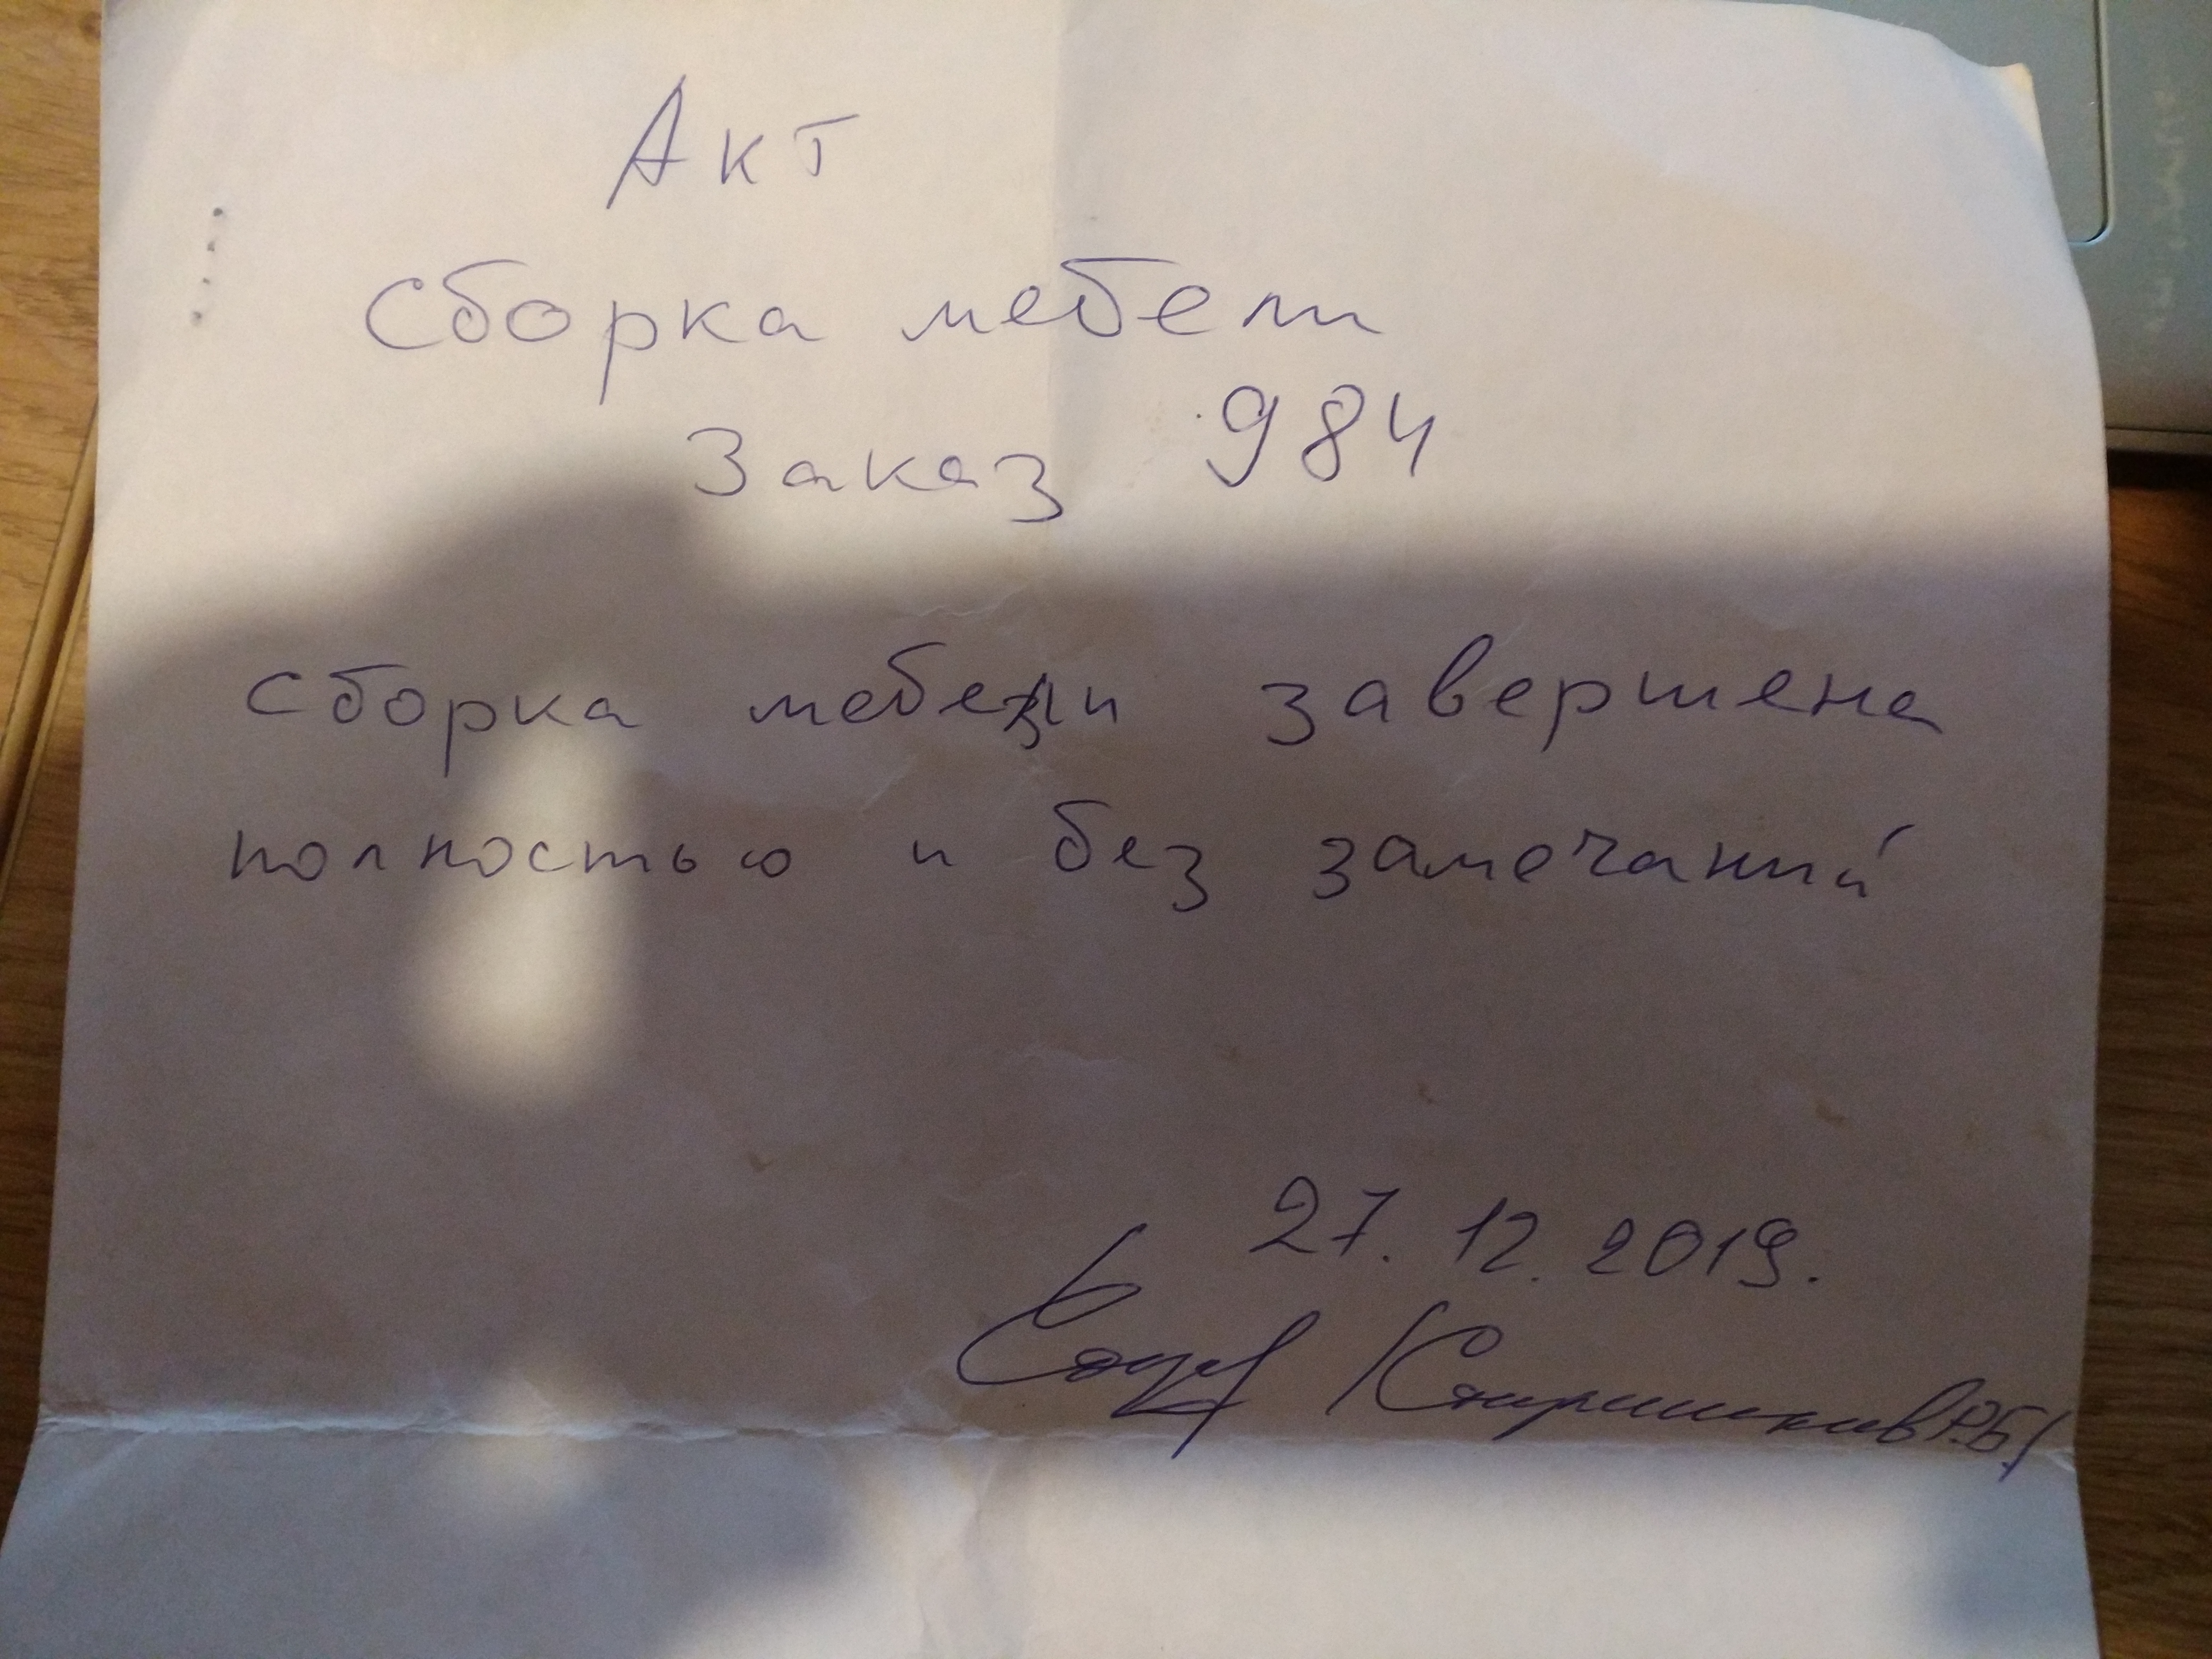 Акт
Сборка мебели
Заказ 984
Сборка мебели завершена
полностью и без замечаний
27.12.2019.
Р.Б/